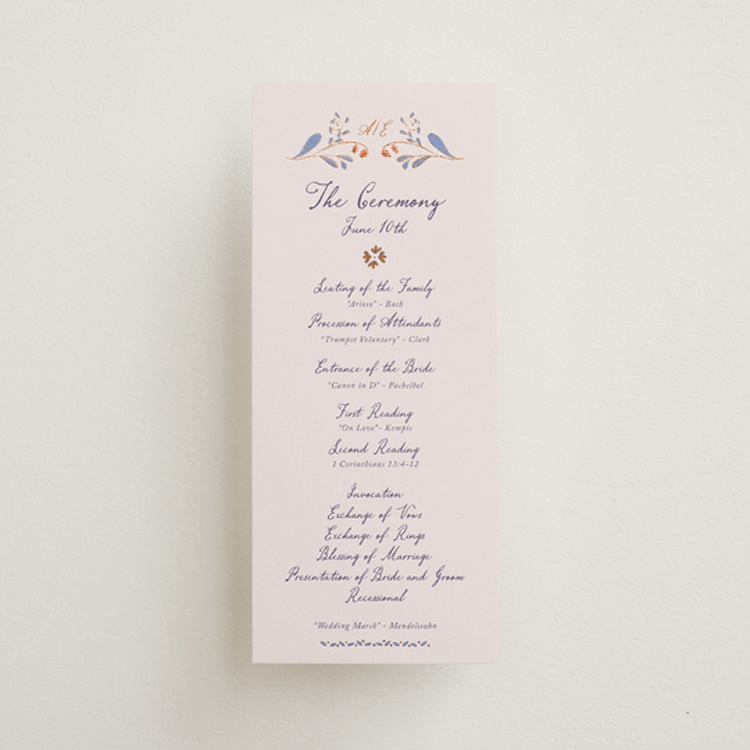 A/E
The Ceremony
June 10th
Seating of the Family
"Arioso" - Bach
Procession of Attendants
"Trumpet Voluntary" - Clark
Entrance of the Bride
"Canon in D" - Pachelbel
First Reading
"On Love" - Kempis
Second Reading
1 Corinthians 13:4-12
Invocation
Exchange of Vows
Exchange of Rings
Blessing of Marriage
Presentation of Bride and Groom
Recessional
"Wedding March" - Mendelssohn